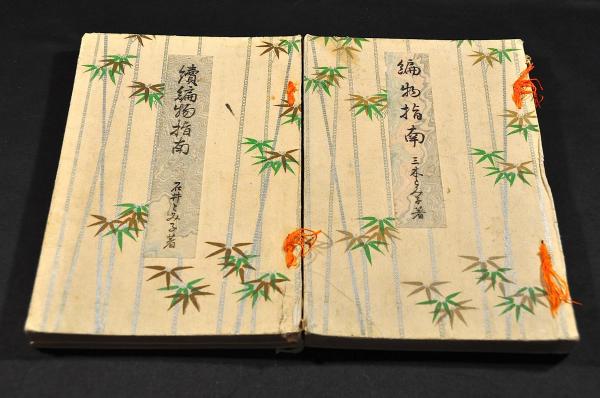 編物指南
とみ子著
續編物指南
石井とみ子著